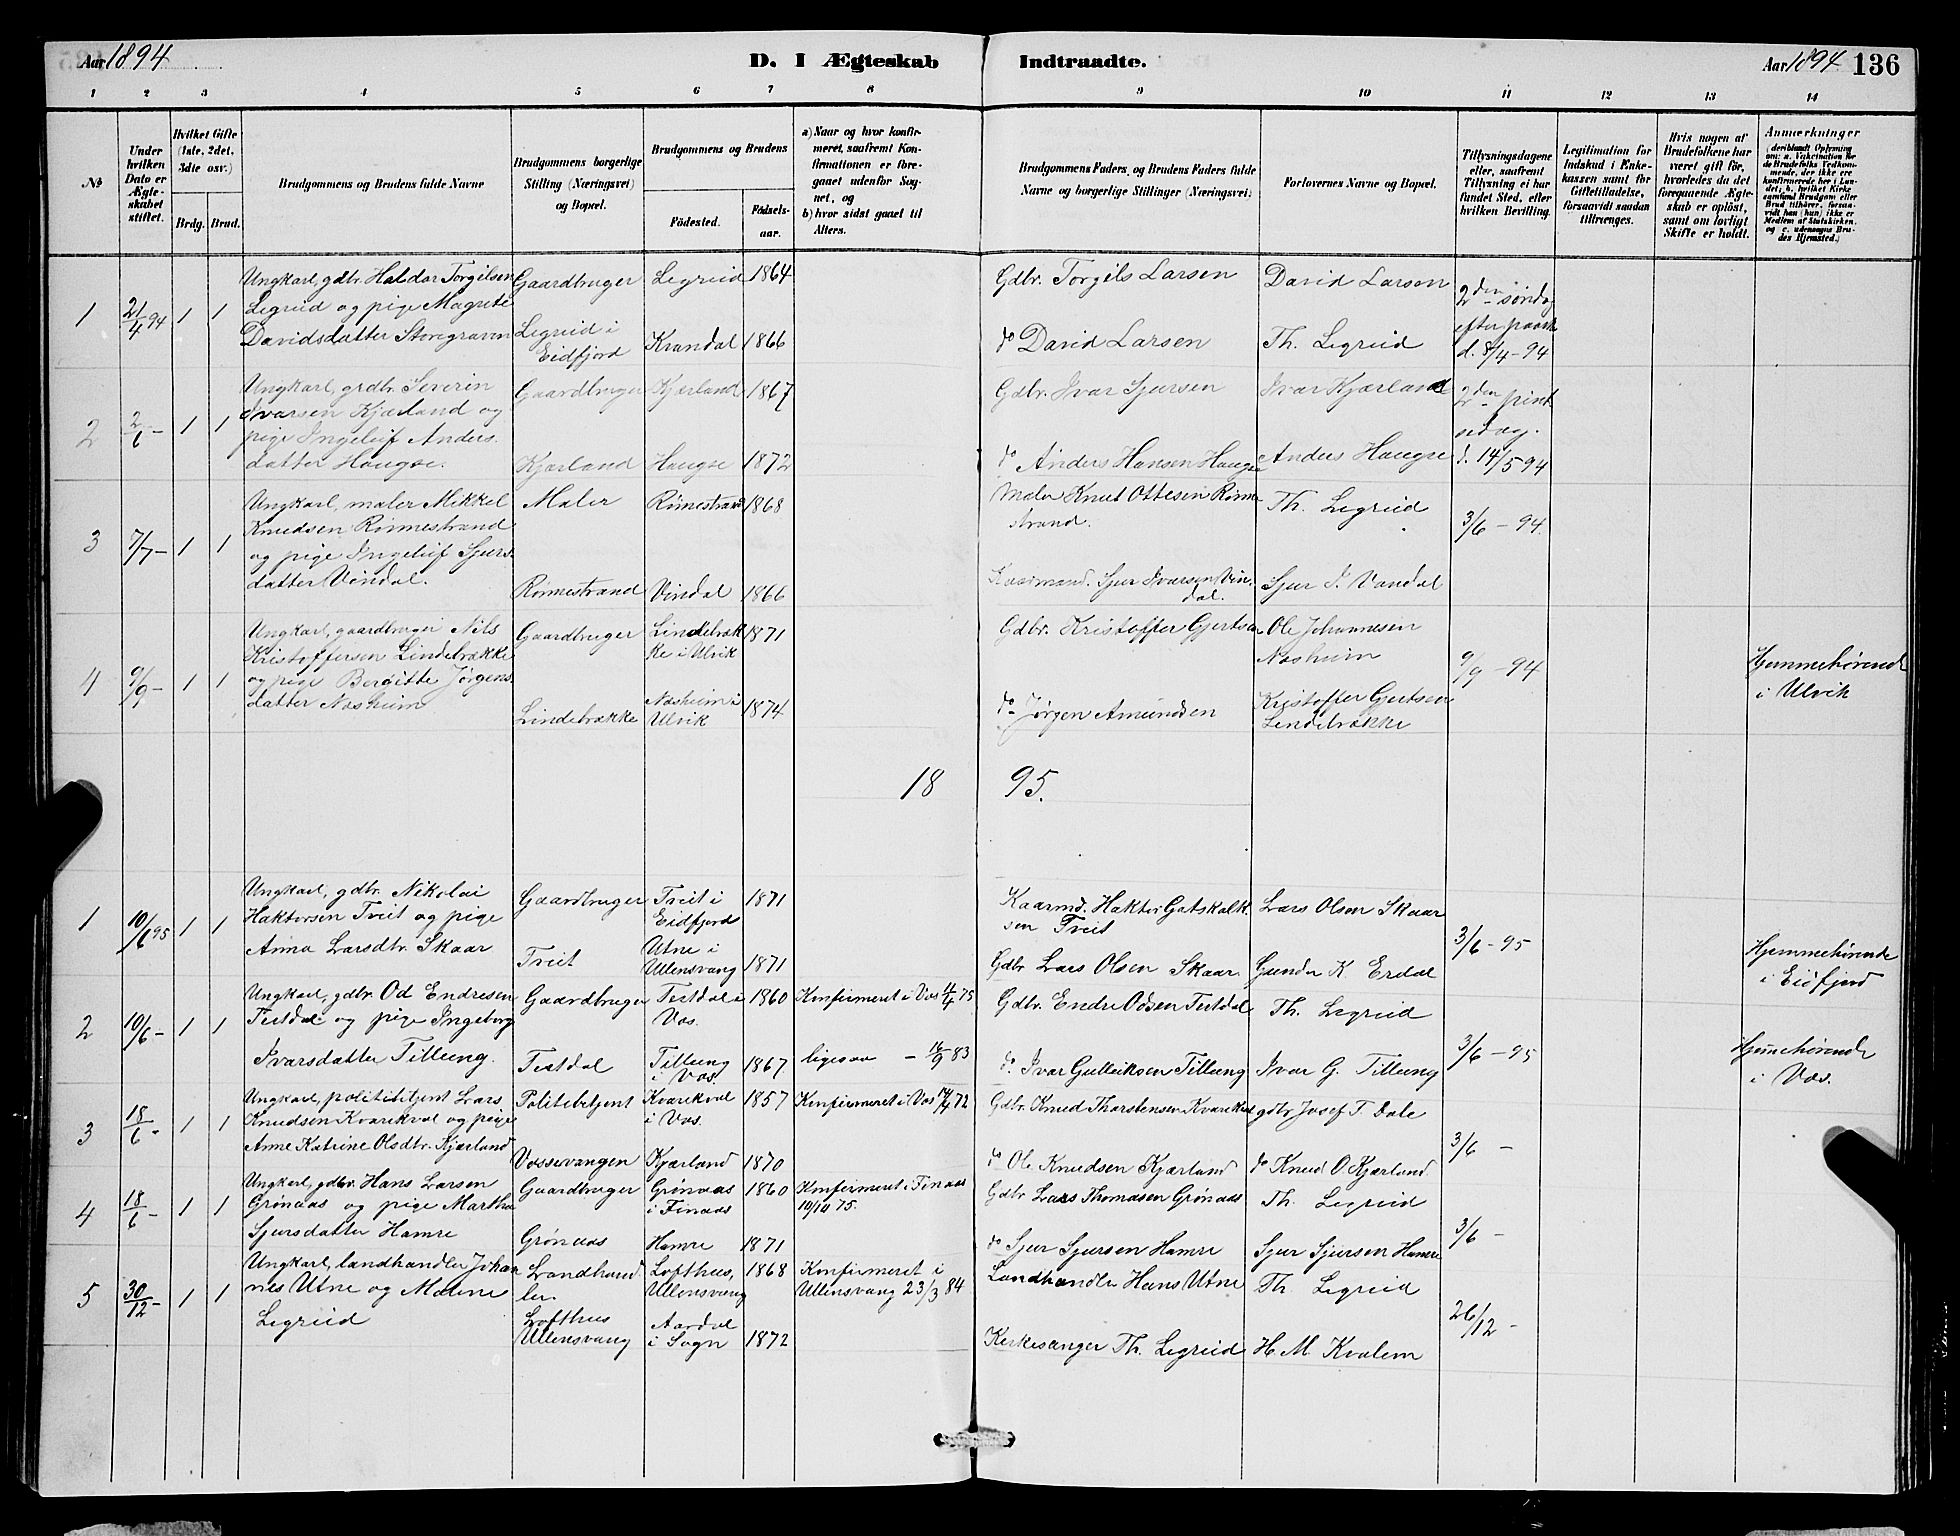 Aar 1894
D. I Ægteskab
Indtraadte.
Aar 1894
136
1 2 3 4 5 6 7 8 9 10 11 12 13 14
No
Under hvilken Dato er Ægteskabet stiftet.
Hvilket Gifte (1ste, 2det, 3dte osv.)
Brdg. Brud.
Brudgommens og Brudens fulde Navne
Brudgommens borgerlige Stilling (Næringsvei) og Bopæl.
Brudgommens og Brudens
Födested.
Födsels-aar.
a) Naar og hvor konfirmeret, saafremt Konfirmationen er foregaaet udenfor Sognet, og
b) hvor sidst gaaet til Alters.
Brudgommens Faders, og Brudens Faders fulde Navne og borgerlige Stillinger (Næringsvei)
Forlovernes Navne og Bopæl.
Tillysningsdagene eller, saafremt Tillysning ei har fundet Sted, efter hvilken Bevilling.
Legitimation for Indskud i Ænkekassen samt for Giftetilladelse, forsaavidt saadan tiltrænges.
Hvis nogen af Brudefolkene har været gift för, hvorledes da det foregaaende Ægteskab er oplöst, samt om lovligt Skifte er holdt.
Anmerkninger (deriblandt Oplysning om: a. Vakcination for de Brudefolks Vedkommende, der ikke ere konfirmerede her i Landet; b. hvilket Kirkesamfund Brudgom eller Brud tilhörer, forsaavidt han (hun) ikke er Medlem af Statskirken, og c. udensogns Brudes Hjemsted.)
1
21/4 94
1 1
Ungkarl, gdbr. Haldor Torgilsen
Legreid og pige Magrete
Davidsdatter Storegraven
Gaardbruger
Legreid i
Eidfjord
Legreid 1864
Kvandal 1866
Gdbr. Torgils Larsen
do David Larsen
David Larsen
Th. Legreid
2den søndag
efter paask
d. 8/4 - 94
2
2/6 -
1 1
Ungkarl, grdbr. Severin
Ivarsen Kjærland og
pige Ingeleif Anders-
datter Haugse.
Gaardbruger
Kjærland
Kjærland 1867
Haugse 1872
Gdbr. Ivar Sjursen
do Anders Hansen Haugse
Ivar Kjærland
Anders Haugse
2den pint
sedag.
d. 14/5 94
3
7/7 -
1 1
Ungkarl, maler Mikkel
Knudsen Rønnestrand
og pige Ingeleif Sjurs-
datter Vindal.
Maler
Rønnestrand
Rønnestrand 1868
Vindal 1866
Maler Knut Ottesen Rønne
strand.
Kaarmand. Sjur Ivarsen Vin-
dal.
Th. Legreid
Sjur I. Vandal
3/6 - 94.
4
9/9 -
1 1
Ungkarl, gaardbruger Nils
Kristoffersen Lindebrække
og pige Bergitte Jørgens-
datter Nesheim
Gaardbruger
Lindebrække
Lindebræk
ke i Ulvik 1871
Nesheim i
Ulvik 1874
Gdbr. Kristoffer Gjertsen
do Jørgen Amundsen
Ole Johannesen
Nesheim
Kristoffer Gjertsen
Lindebrække
9/9 - 94
Hjemmehørende
i Ulvik
18 95.
1
10/6 95
1 1
Ungkarl, gdbr. Nikolai
Haktorsen Tveit og pige
Anna Larsdtr. Skaar
Gaardbruger
Tveit
Tveit i
Eidfjord 1871
Utne i
Ullensvang 1871
Kaarmd. Haktor Gatskalk-
sen Tveit
Gdbr Lars Olsen Skaar
Lars Olsen Skaar
Gunder K. Erdal
3/6 - 95
Hjemmehørende
i Eidfjord
2
10/6 -
1 1
Ungkarl, gdbr. Od Endresen
Testdal og pige Ingeborg
Ivarsdatter Tillung.
Gaardbruger
Testdal
Testdal i
Vos. 1860
Tillung
i Vos. 1867
Konfirmeret i Vos 11/4 75
ligesaa - 16/9 83
Gdbr. Endre Odsen Testdal
do. Ivar Gulleiksen Tillung
Th. Legreid
Ivar G. Tillung
3/6 - 95
Hjemmehørende
i Vos.
3
18/6 -
1 1
Ungkarl, politibetjent Lars
Knudsen Kvarekval og pige
Anne Katrine Olsdtr. Kjærland
Politebetjent
Vossevangen
Kvarekval
i Vos. 1857
Kjærland 1870
Konfirmeret i Vos 14/4 72
Gdbr. Knud Tharstensen Kvarekval
do Ole Knudsen Kjærland
gdbr Josef T. Dale
do Knud O Kjærland
3/6 -
4
18/6 -
1 1
Ungkarl, gdbr. Hans Larsen
Grønaas og pige Martha
Sjursdatter Hamre
Gaardbruger
Grønaas
Grønaas
i Finaas 1860
Hamre 1871
Konfirmeret i Finaas
10/10 75.
Gdbr Lars Thomasen Grønaas
do Sjur Sjursen Hamre
Th. Legreid
Sjur Sjursen Hamre
3/6 -
5
30/12 -
1 1
Ungkarl, landhandler Johan
nes Utne og Malene
Legreid
Landhand
ler.
Lofthus
Ullensvang
Lofthus,
Ullensvang 1868
Aardal
i Sogn 1872
Konfirmeret i
Ullensvang 23/3 84
Landhandler Hans Utne
Kirkesanger Th. Legreid
Th. Legreid
H. M. Kvalem
26/12 -